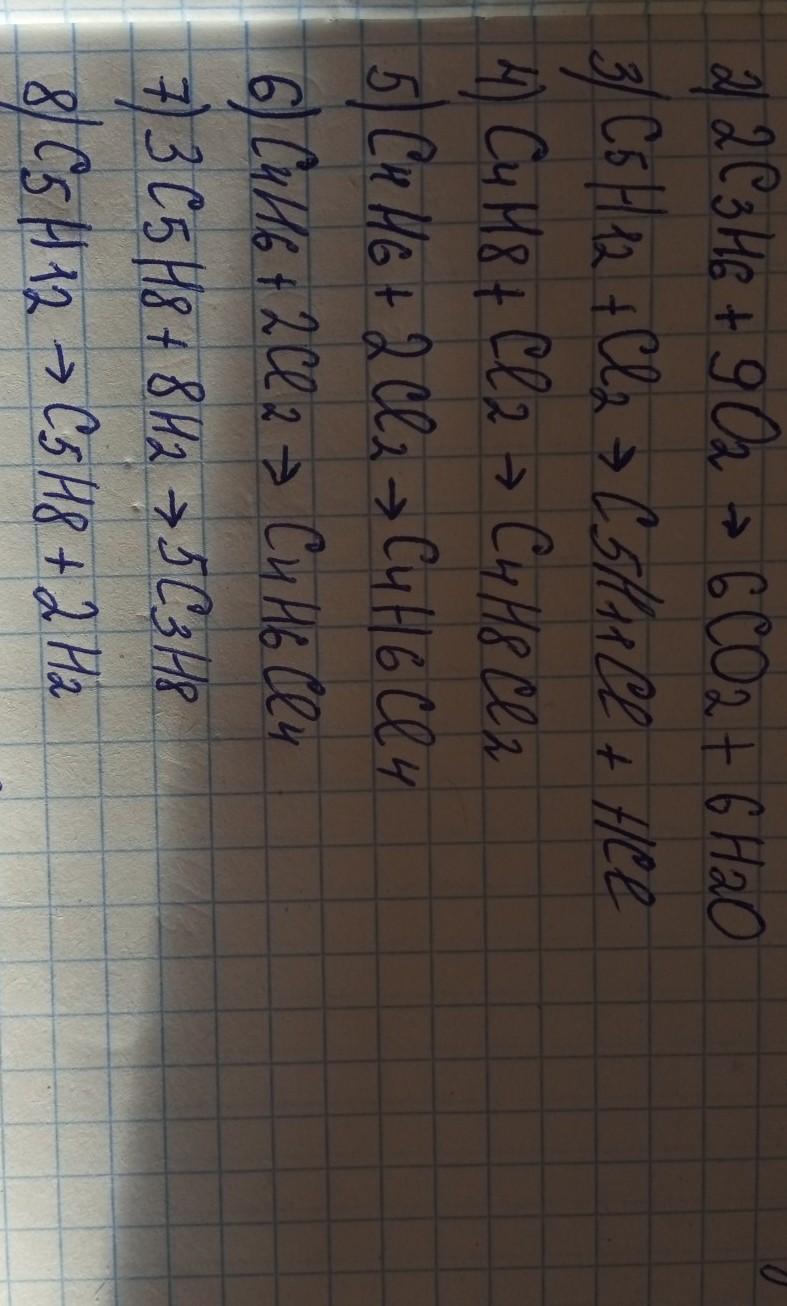 2) 2C3H6 + 9O2 → 6CO2 + 6H2O
3) C5H12 + Cl2 → C5H11Cl + HCl
4) C4H8 + Cl2 → C4H8Cl2
5) C4H6 + 2Cl2 → C4H6Cl4
6) C4H6 + 2Cl2 → C4H6Cl4
7) 3C5H8 + 8H2 → 5C3H8
8) C5H12 → C5H8 + 2H2